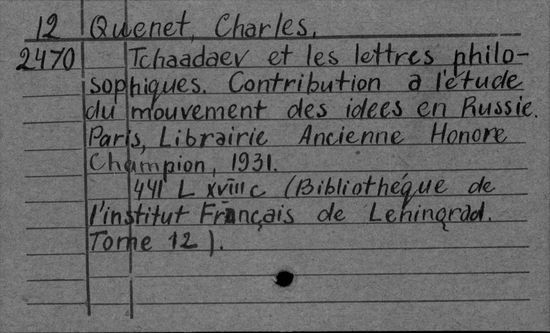 12 Quenet, Charles.
2470 Tchaadaev et les lettres philo-
sophiques. Contribution a l'étude
du mouvement des idees en Russie.
Paris, Librairie Ancienne Honore
Champion, 1931.
441 L XVIII c (Bibliothéque de
l'institut Français de Leningrad.
Tome 12).